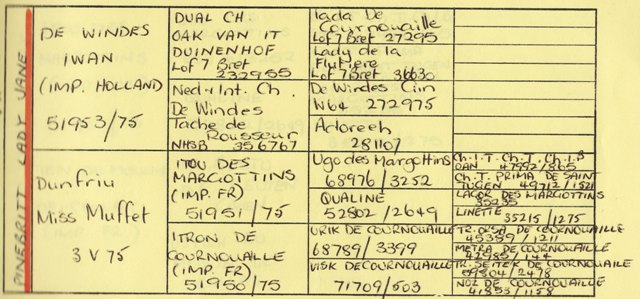 PINEBRITT LADY JANE
DE WINDES
IWAN
(IMP. HOLLAND)
51953/75
Dunfriu
Miss Muffet
3 V 75
DUAL CH.
OAK VAN IT
DUINENHOF
Lof 7 Bret
232955
Ned & Int. Ch.
De Windes
Tache de
Rousseur
NHSB 356767
ITOU DES
MARGIOTTINS
(IMP. FR)
51951/75
ITRON DE
CORNOUAILLE
(IMP. FR)
51950/75
Iada De
Cournouaille
Lof 7 Bret 27295
Lady de la
Flutiere
Lof 7 Bret 36630
De Windes Cin
N64 272975
Adoreeh
281107
Ugo des Margottins
68976/3252
QUALINE
52802/2649
URIK DE COURNOUAILLE
68789/3399
VISK DE COURNOUAILLE
71709/503
Ch. I. T. Ch. T. Ch. I. B
OAN 47992/865
Ch. T. PRIMA DE SAINT
TUGEN 49712/1521
LAGOR DES MARGIOTTINS
35235
LINETTE
35215/1275
TR. ORSA DE CORNOUAILLE
45359/1211
METRA DE CORNOUAILLE
42982/144
TR. SEITEK DE CORNOUAILLE
59304/2478
NOZ DE CORNOUAILLE
41853/1158